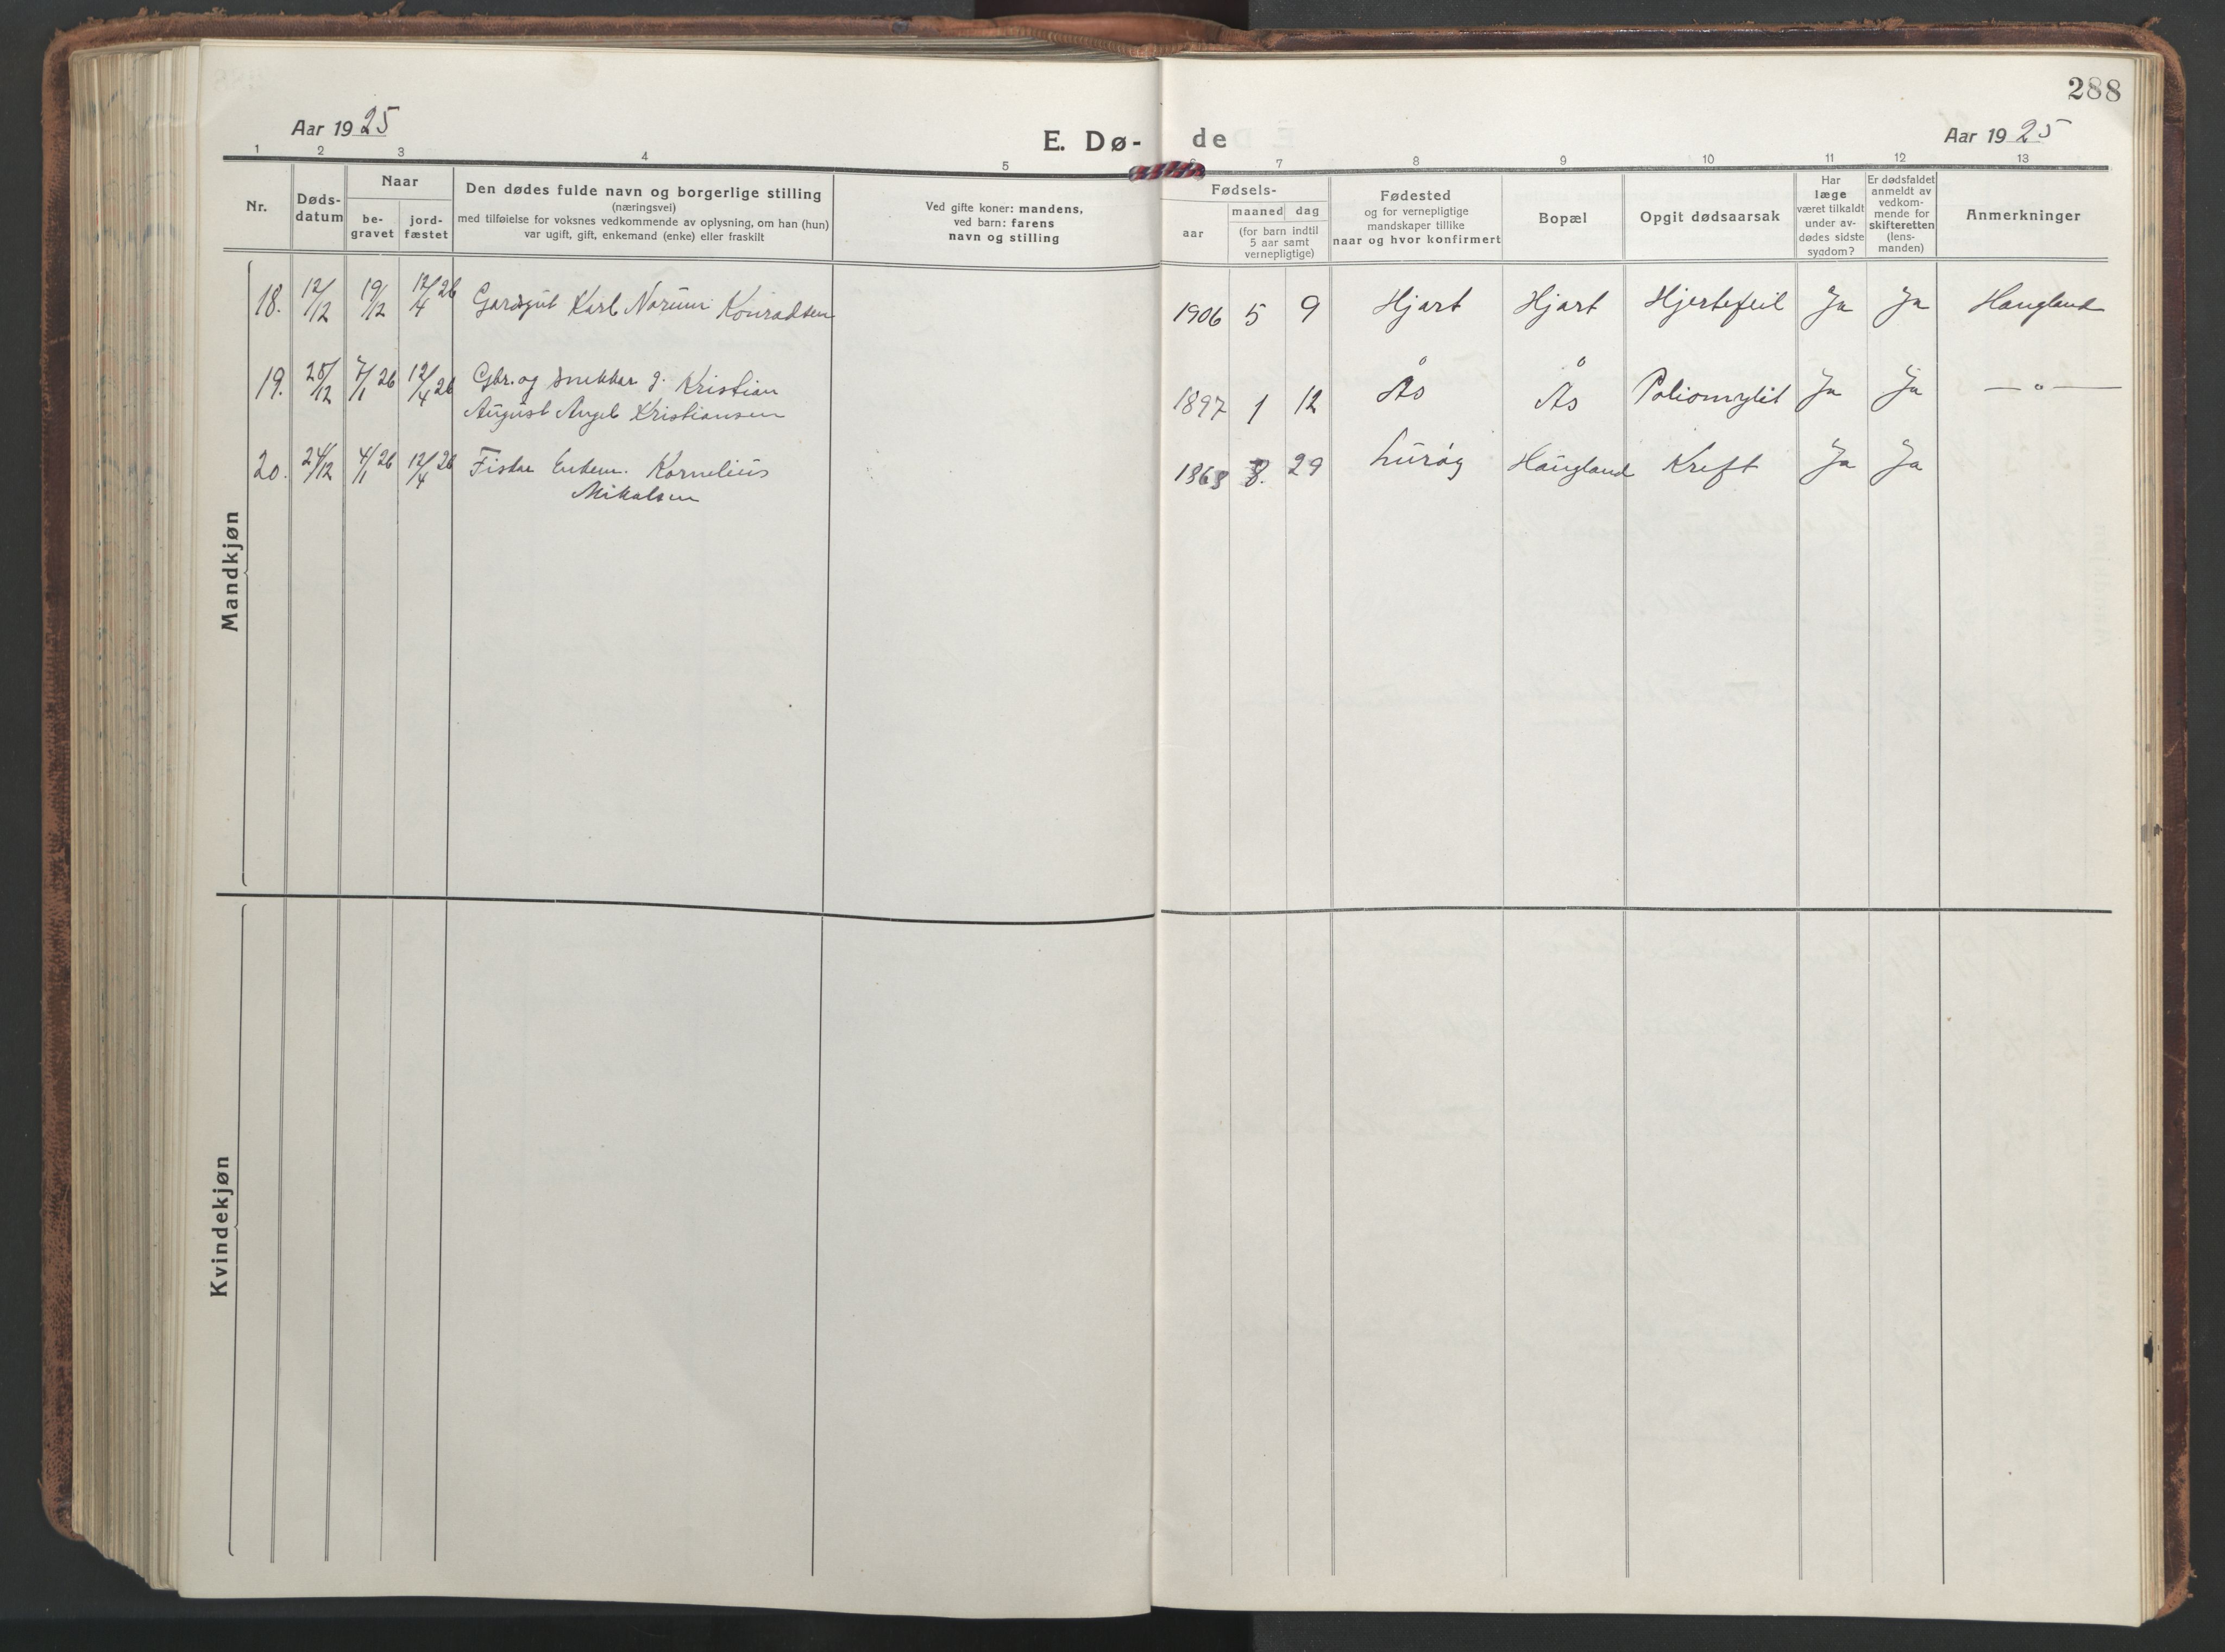 288
Aar 1925
E. Dø-
de
Aar 1925
1 2 3 4 5 6 7 8 9 10 11 12 13
Nr.
Døds-
datum
Naar
be-
gravet
jord-
fæstet
Den dødes fulde navn og borgerlige stilling
(næringsvei)
med tilføielse for voksnes vedkommende av oplysning, om han (hun)
var ugift, gift, enkemand (enke) eller fraskilt
Ved gifte koner: mandens,
ved barn: farens
navn og stilling
Fødsels-
aar
maaned dag
(for barn indtil
5 aar samt
vernepligtige)
Fødested
og for vernepligtige
mandskaper tillike
naar og hvor konfirmert
Bopæl
Opgit dødsaarsak
Har
læge
været tilkaldt
under av-
dødes sidste
sygdom?
Er dødsfaldet
anmeldt av
vedkom-
mende for
skifteretten
(lens-
manden)
Anmerkninger
Mandkjøn
18. 12/12 19/12 12/4 26 Gardgut Karl Konradsen 1906 5 9 Hjart Hjart Hjertefeil Ja Ja Haugland
19. 28/12 7/1 26 12/4 26 Gbr. og snekker g. Kristian
August Angel Kristiansen 1897 1 12 Ås Ås Poliomylit Ja Ja — " —
20. 24/12 4/1 26 12/4 26 Fisker Enkem. Kornelius
Mikalsen 1868 8. 29 Lurøy Haugland Kreft Ja Ja
Kvindekjøn